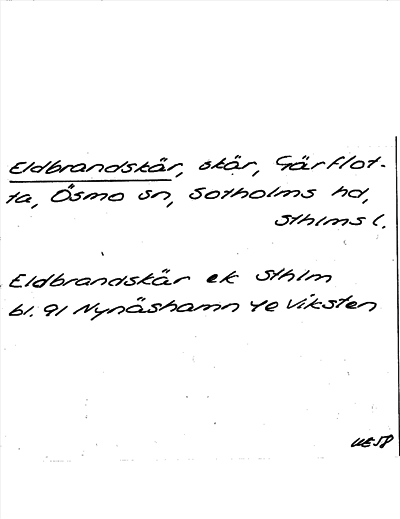 Eldbrandskär, skär, Gärflot-
ta, Ösmo sn, Sotholms hd,
Sthlms l.
Eldbrandskär ek Sthlm
bl. 91 Nynäshamn 4e Viksten